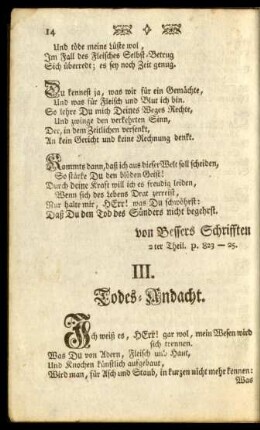 14
Und töde meine lüste wol,
Im Fall des Fleisches Selbst-Betrug
Sich überredt; es sey noch Zeit genug.
Du kennest ja, was wir für ein Gemächte,
Und was für Fleisch und Blut ich bin.
So lehre Du mich Deines Weges Rechte,
Und zwinge den verkehrten Sinn,
Der, in dem Zeitlichen versenkt,
An kein Gericht und keine Rechnung denkt.
Kommts dann, daß ich aus dieser Welt soll scheiden,
So stärke Du den blöden Geist!
Durch deine Kraft will ich es freudig leiden,
Wenn sich des Lebens Drat zerreißt,
Nur halte mir, HErr! was Du schwöhrst:
Daß Du den Tod des Sünders nicht begehrst.
von Bessers Schrifften
2ter Theil. p. 823 — 25.
III.
Todes-Andacht.
Ich weiß es, HErr! gar wol, mein Wesen wird
sich trennen.
Was Du von Adern, Fleisch und Haut,
Und Knochen künstlich aufgebaut,
Wird man, für Asch und Staub, in kurzen nicht mehr kennen:
Was